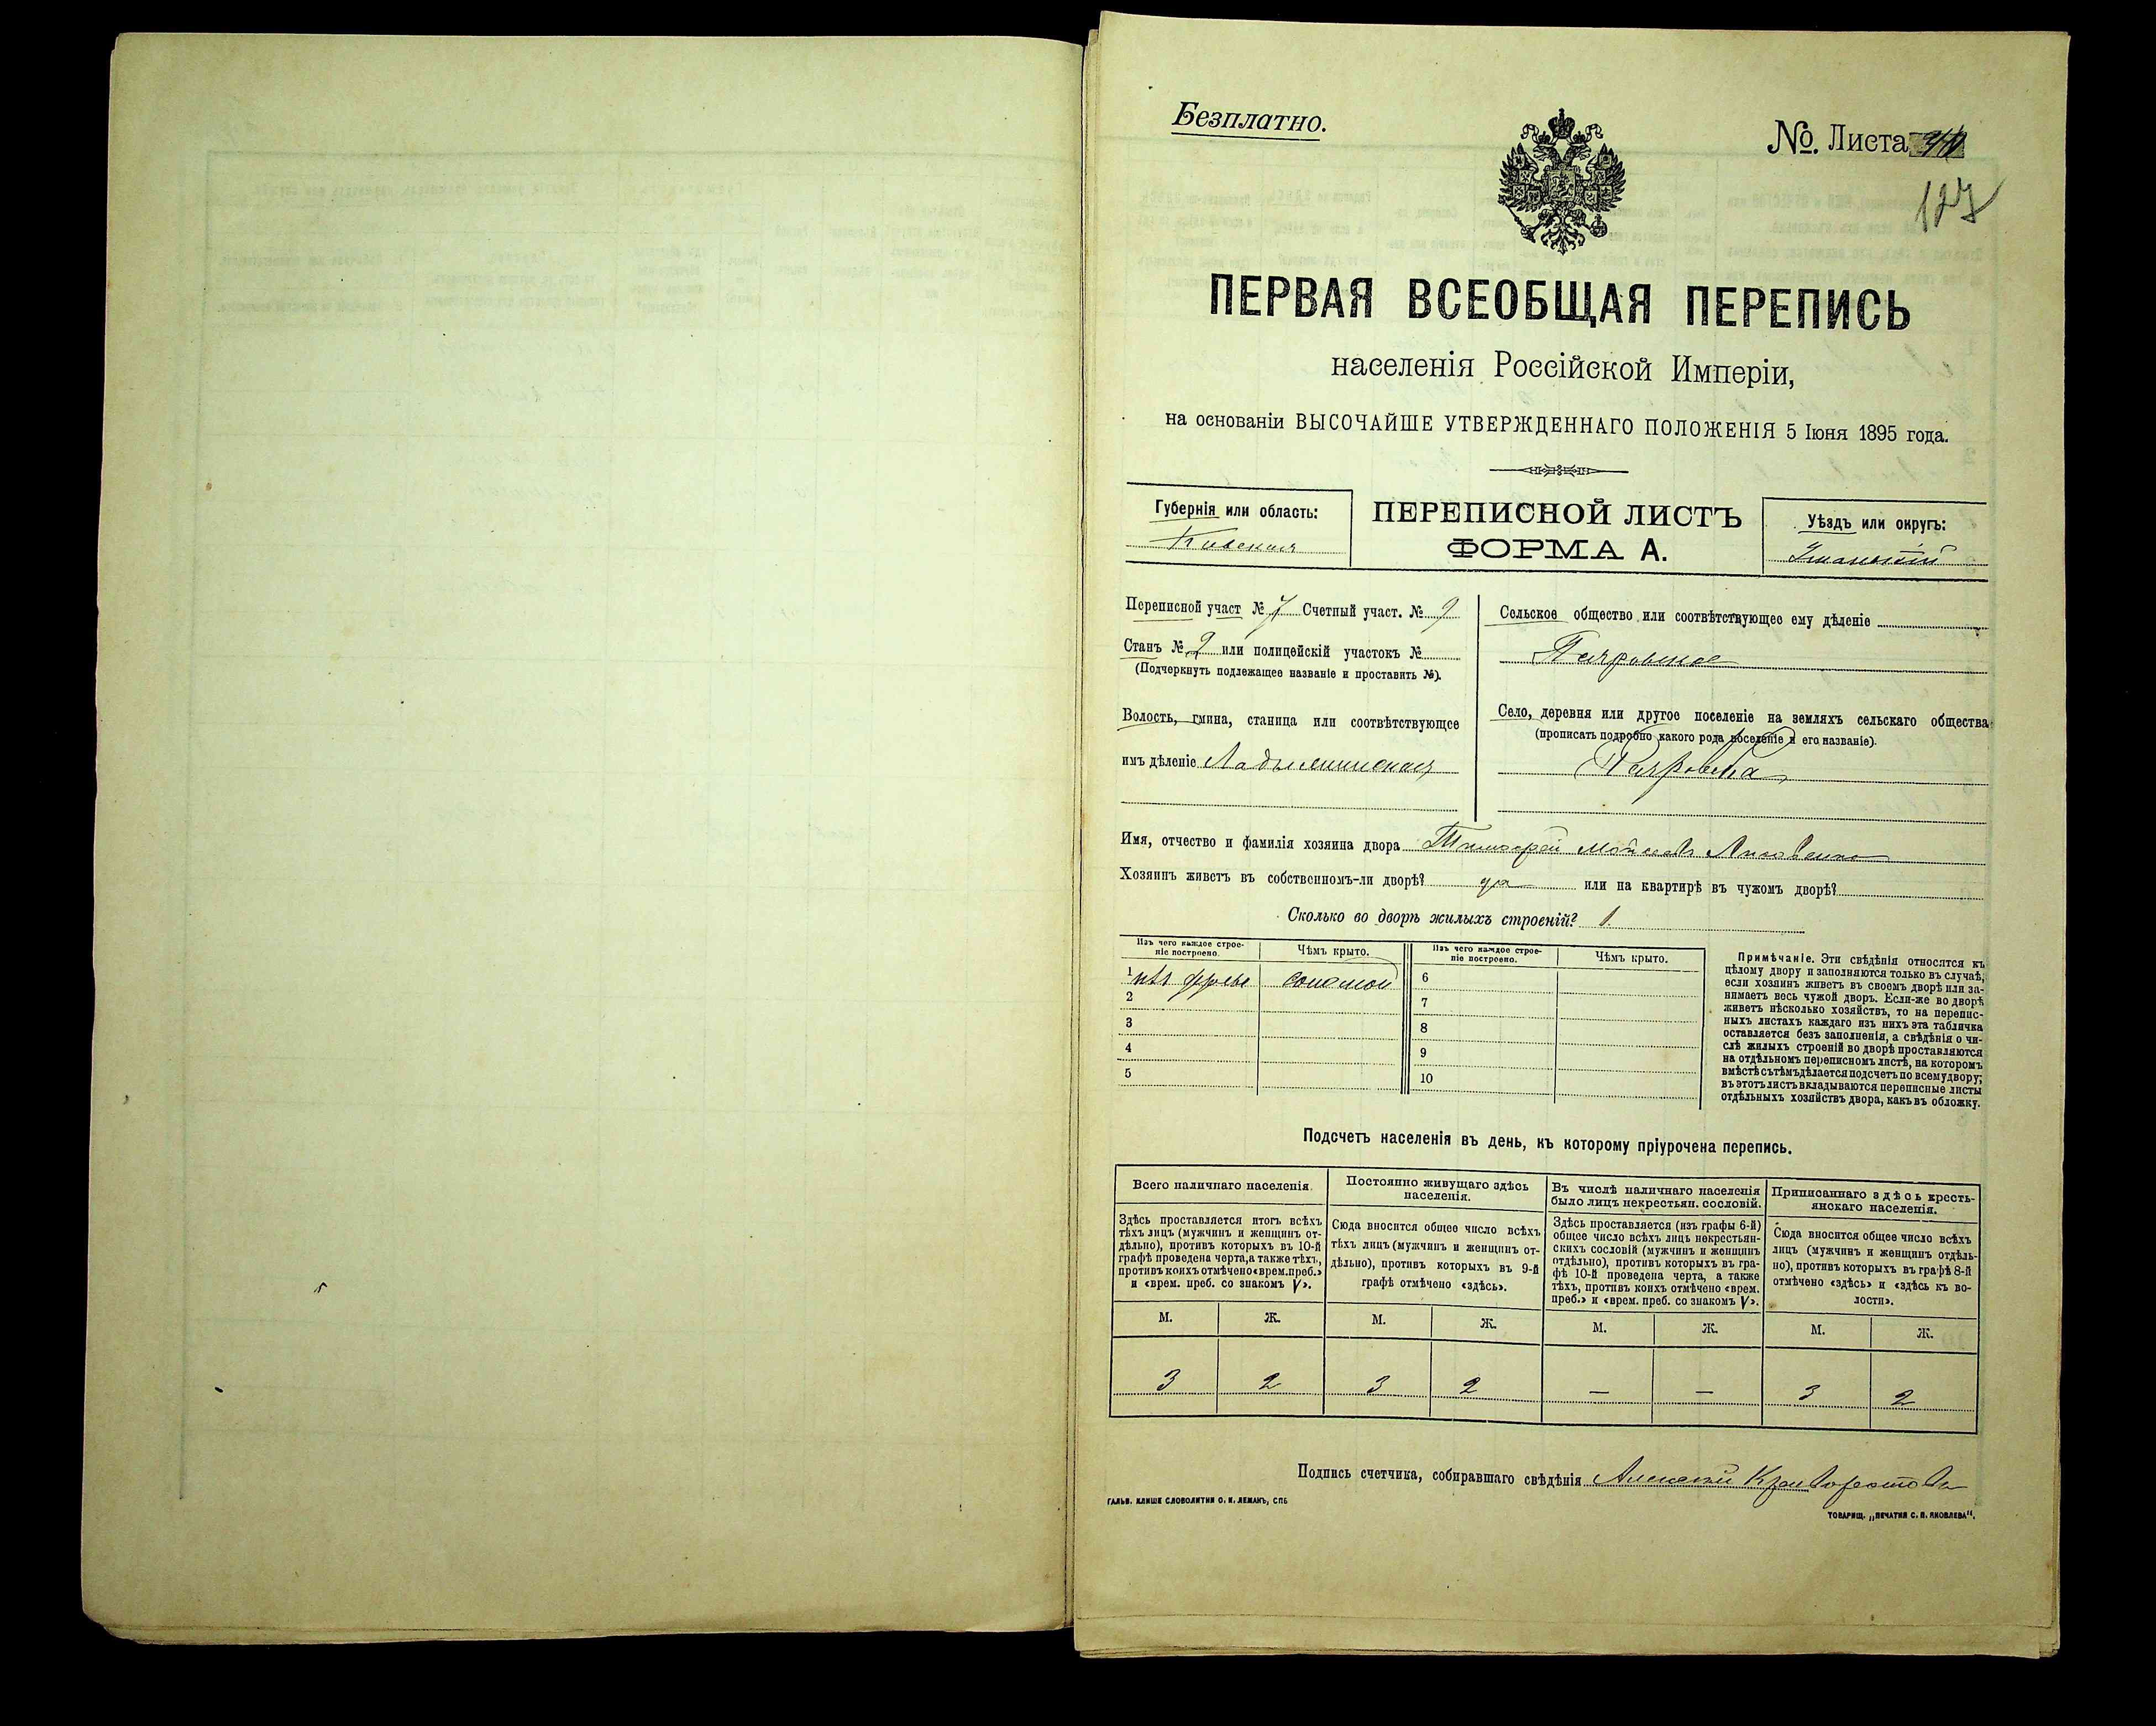 Безплатно.
№. Листа
127
ПЕРВАЯ ВСЕОБЩАЯ ПЕРЕПИСЬ
населенія Россійской Имперіи,
на основаніи ВЫСОЧАЙШЕ УТВЕРЖДЕННАГО ПОЛОЖЕНІЯ 5 Іюня 1895 года.
Губернія или область:
Кіевская
ПЕРЕПИСНОЙ ЛИСТЪ
ФОРМА А.
Уѣздъ или округъ:
Уманскій
Переписной участ № 7 Счетный участ. № 9
Станъ № 2 или полицейскій участокъ №
(Подчеркнуть подлежащее названіе и проставить №).
Волость, гмина, станица или соотвѣтствующее
имъ дѣленіе Ладыжинская
Сельское общество или соотвѣтствующее ему дѣленіе
Село, деревня или другое поселеніе на земляхъ сельскаго общества
(прописать подробно какого рода поселеніе и его названіе).
Имя, отчество и фамилія хозяина двора Тимофей Мойсеевъ
Хозяинъ живетъ въ собственномъ-ли дворѣ? да или на квартирѣ въ чужомъ дворѣ?
Сколько во дворѣ жилыхъ строеній? 1
Изъ чего каждое строе-
ніе построено.
Чѣмъ крыто.
Изъ чего каждое строе-
ніе построено.
Чѣмъ крыто.
1 изъ соломой
2
3
4
5
6
7
8
9
10
Примѣчаніе. Эти свѣдѣнія относятся къ
цѣлому двору и заполняются только въ случаѣ,
если хозяинъ живетъ въ своемъ дворѣ или за-
нимаетъ весь чужой дворъ. Если-же во дворѣ
живетъ нѣсколько хозяйствъ, то на перепис-
ныхъ листахъ каждаго изъ нихъ эта табличка
оставляется безъ заполненія, а свѣдѣнія о чи-
слѣ жилыхъ строеній во дворѣ проставляются
на отдѣльномъ переписномъ листѣ, на которомъ
вмѣстѣ съ тѣмъ дѣлается подсчетъ по всему двору;
въ этотъ листъ вкладываются переписные листы
отдѣльныхъ хозяйствъ двора, какъ въ обложку.
Подсчетъ населенія въ день, къ которому пріурочена перепись.
Всего наличнаго населенія.
Здѣсь проставляется итогъ всѣхъ
тѣхъ лицъ (мужчинъ и женщинъ от-
дѣльно), противъ которыхъ въ 10-й
графѣ проведена черта, а также тѣхъ,
противъ коихъ отмѣчено «врем. преб.»
и «врем. преб. со знакомъ V».
Постоянно живущаго здѣсь
населенія.
Сюда вносится общее число всѣхъ
тѣхъ лицъ (мужчинъ и женщинъ от-
дѣльно), противъ которыхъ въ 9-й
графѣ отмѣчено «здѣсь».
Въ числѣ наличнаго населенія
было лицъ некрестьян. сословій.
Здѣсь проставляется (изъ графы 6-й)
общее число всѣхъ лицъ некрестьян-
скихъ сословій (мужчинъ и женщинъ
отдѣльно), противъ которыхъ въ гра-
фѣ 10-й проведена черта, а также
тѣхъ, противъ коихъ отмѣчено «врем.
преб.» и «врем. преб. со знакомъ V».
Приписаннаго здѣсь кресть-
янскаго населенія.
Сюда вносится общее число всѣхъ
лицъ (мужчинъ и женщинъ отдѣль-
но), противъ которыхъ въ графѣ 8-й
отмѣчено «здѣсь» и «здѣсь къ во-
лости».
М. Ж. М. Ж. М. Ж. М. Ж.
3 2 3 2 — — 3 2
Подпись счетчика, собиравшаго свѣдѣнія Алексѣй
ГАЛЬВ. КЛИШЕ СЛОВОЛИТНИ О. И. ЛЕМАНЪ, СПБ
ТОВАРИЩ. „ПЕЧАТНЯ С. П. ЯКОВЛЕВА".